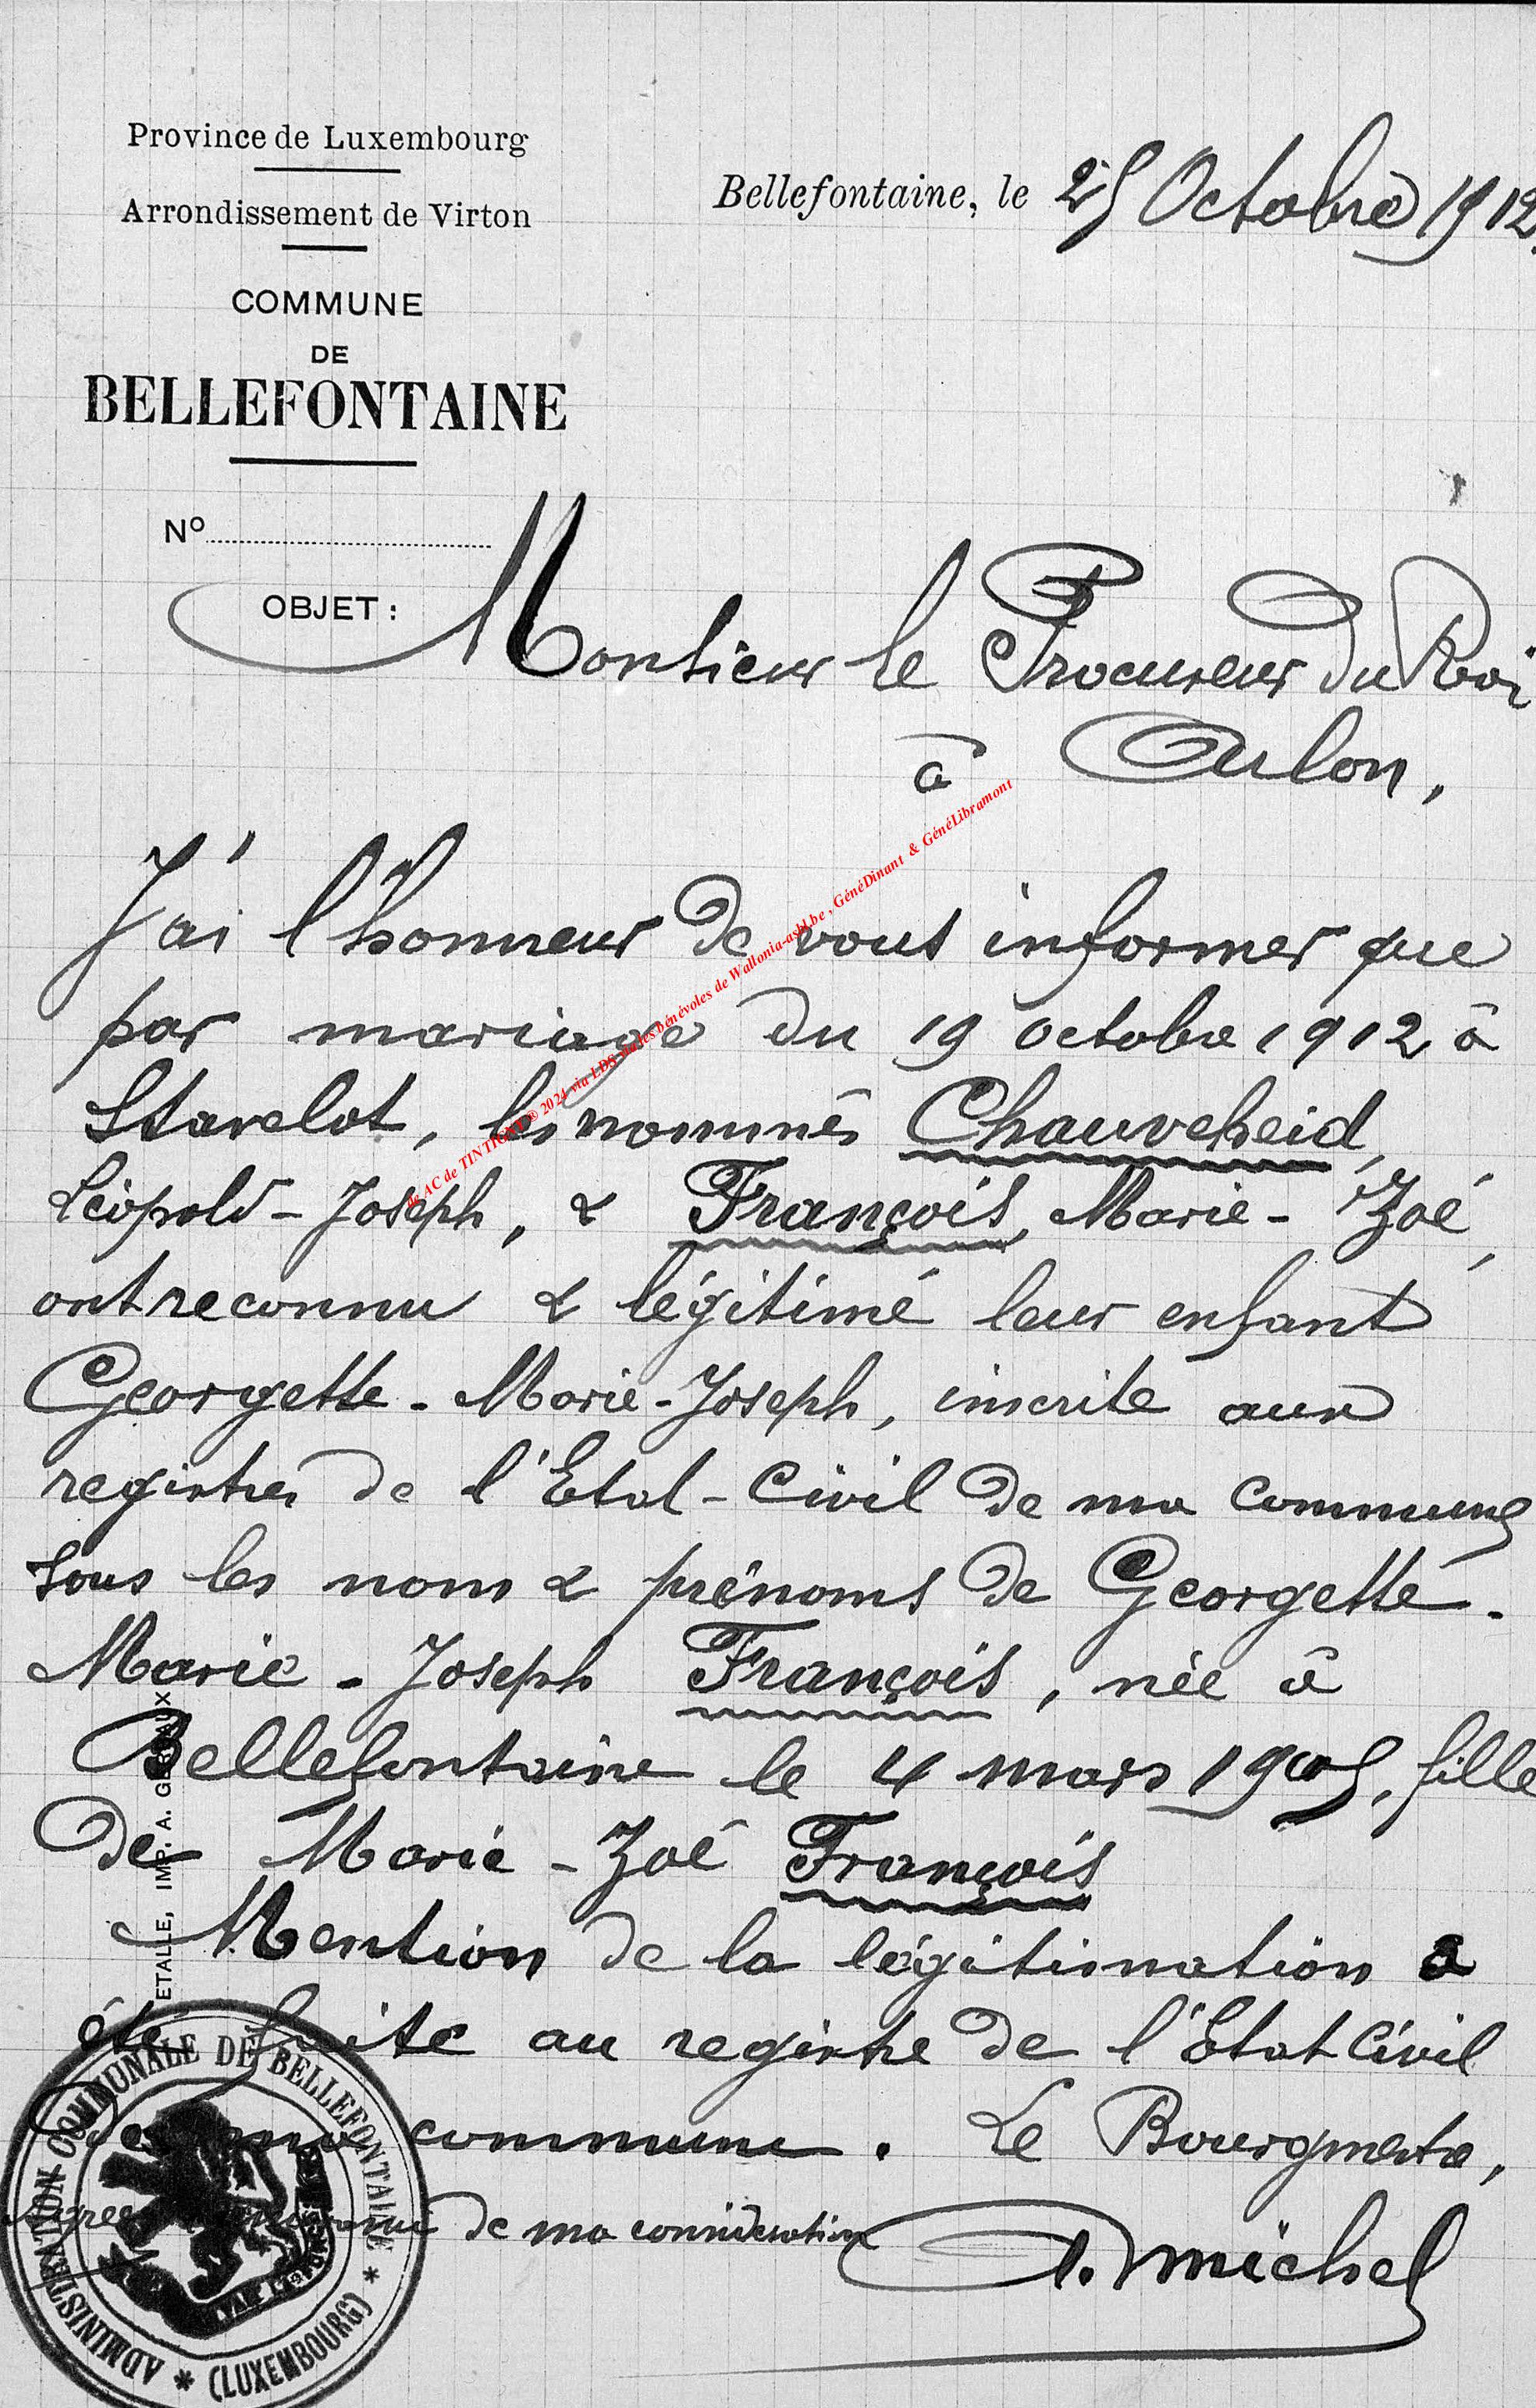 Province de Luxembourg
Arrondissement de Virton
COMMUNE
DE
BELLEFONTAINE
Nº
OBJET :
Bellefontaine, le 25 Octobre 1912.
Monsieur le Procureur du Roi
à Arlon,
J'ai l'honneur de vous informer que
par mariage du 19 octobre 1912 à
Stavelot, les nommés Chauveheid,
Léopold-Joseph, & François, Marie-Zoé,
ont reconnu & légitimé leur enfant
Georgette-Marie-Joseph, inscrite aux
registres de l'Etat-Civil de ma commune
sous les nom & prénoms de Georgette-
Marie-Joseph François, née à
Bellefontaine le 4 mars 1905, fille
de Marie-Zoé François
Mention de la légitimation a
été faite au registre de l'Etat Civil
de ma commune. Le Bourgmestre,
de ma considération
Michel
ETALLE, IMP. A.
ADMINISTRATION COMMUNALE DE BELLEFONTAINE * (LUXEMBOURG) *
de AC de TINTIGNY © 2024 via LDS via les bénévoles de Wallonia-asbl.be, GénéDinant & GénéLibramont